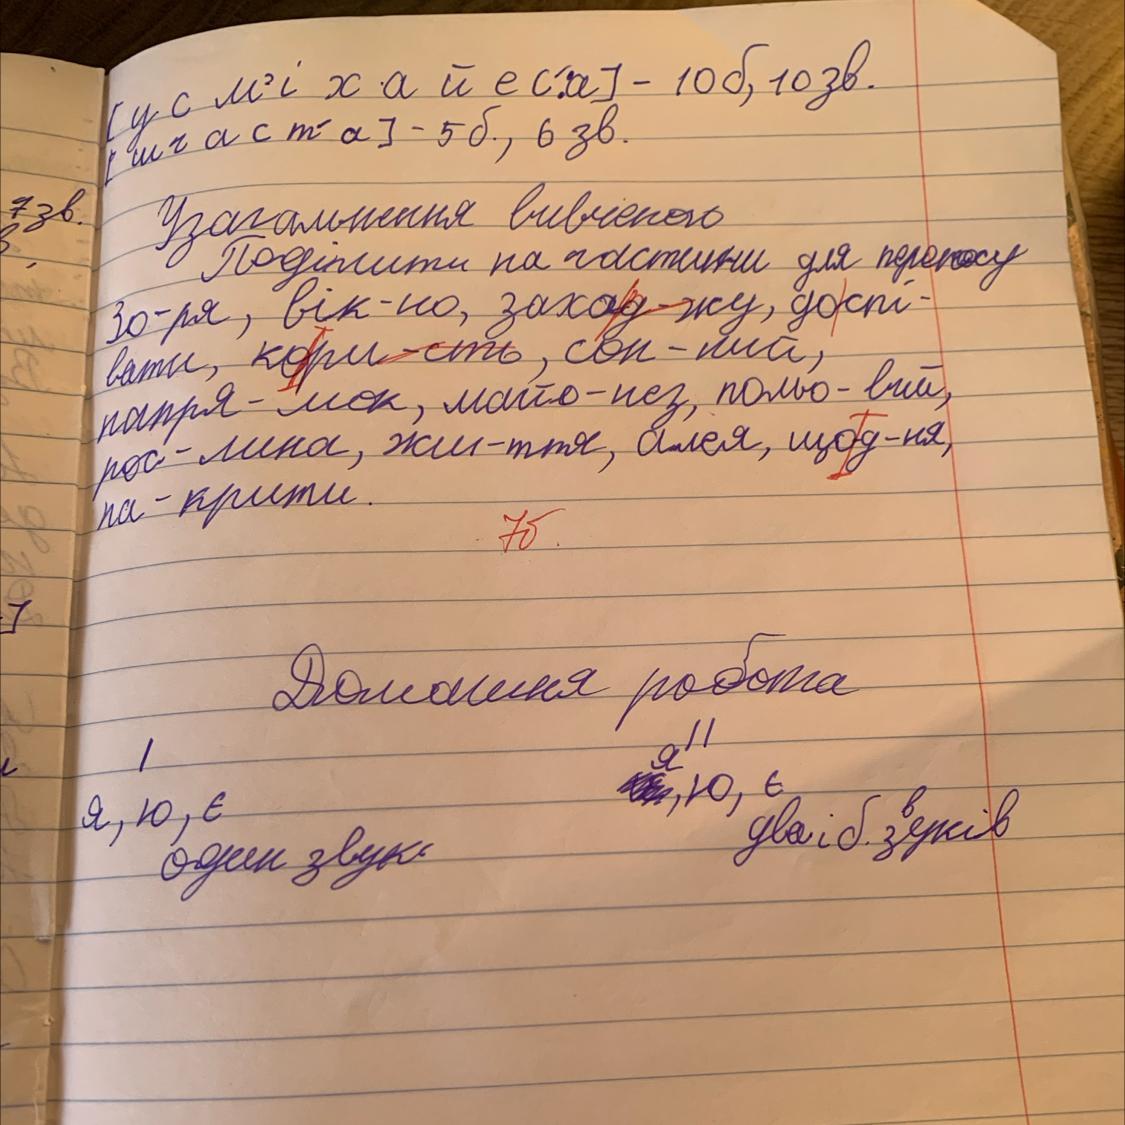 [у с м' і х а й е с':а] – 10 б, 10 зв.
[ш ч а с т' а] – 5 б., 6 зв.
7 зв.
Узагальнення вивченого
Поділити на частини для переносу
Зо-ря, вік-но, заход-жу, доспі-
вати, кори-сть, сон-ний,
напря-мок, майо-нез, польо-вий,
рос-лина, жи-ття, алея, щод-ня,
на-крити.
7б.
Домашня робота
I II
я
я, ю, є , ю, є
один звук два і б. звуків